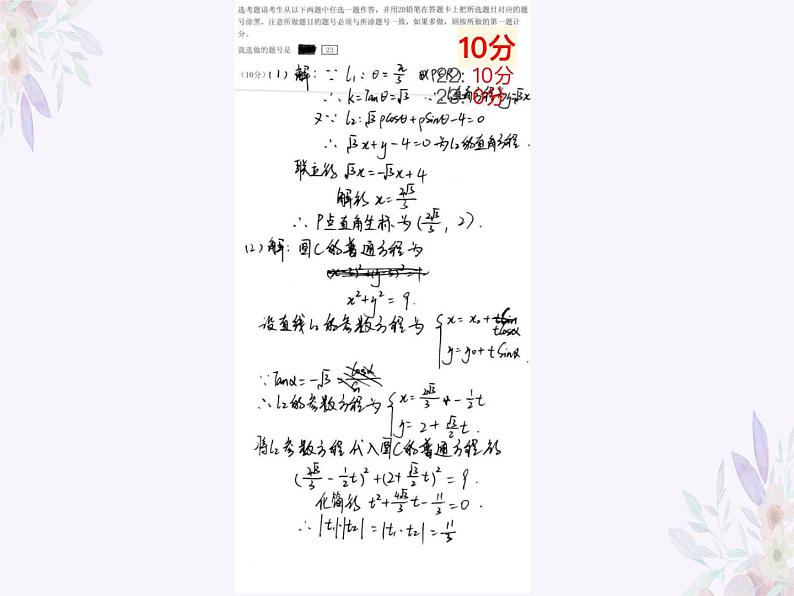 选考题请考生从以下两题中任选一题作答，并用2B铅笔在答题卡上把所选题目对应的题
号涂黑，注意所做题目的题号必须与所涂题号一致，如果多做，则按所做的第一题计
分。
10分
我选做的题号是 23
22: 10分
(10分) (1) 解: ∵ l₁: θ = π/3
∴ k = tanθ = √3 ∴ 直角方程 y=√3x
又∵ l₂: √3ρcosθ + ρsinθ - 4 = 0
∴ √3x + y - 4 = 0 为l₂的直角方程.
联立得 √3x = -√3x + 4
解得 x = 2√3/3
∴ P点直角坐标为 (2√3/3, 2).
(2) 解: 圆C的普通方程为
x² + y² = 9.
设直线l₂的参数方程为 { x = x₀ + tcosα
y = y₀ + tsinα
∵ tanα = -√3
∴ l₂的参数方程为 { x = 2√3/3 - 1/2 t
y = 2 + √3/2 t.
将l₂参数方程代入圆C的普通方程得
(2√3/3 - 1/2 t)² + (2 + √3/2 t)² = 9.
化简得 t² + 4√3/3 t - 11/3 = 0.
∴ |t₁|·|t₂| = |t₁·t₂| = 11/3